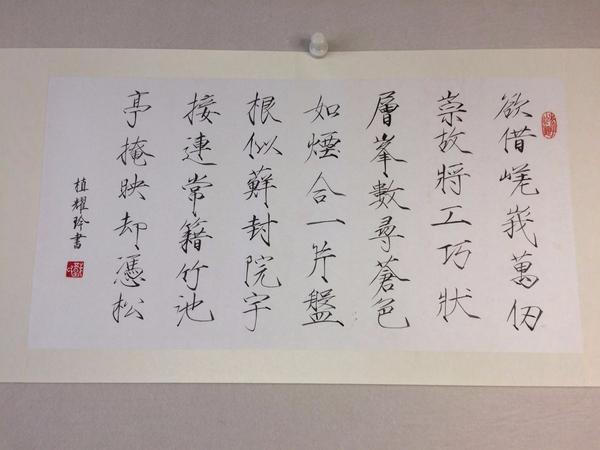 欲借嵯峩萬仞
崇故將工巧狀
層峯數尋蒼色
如煙合一片盤
根似蘚封院宇
接連常籍竹池
亭掩映却憑松
植耀玲書